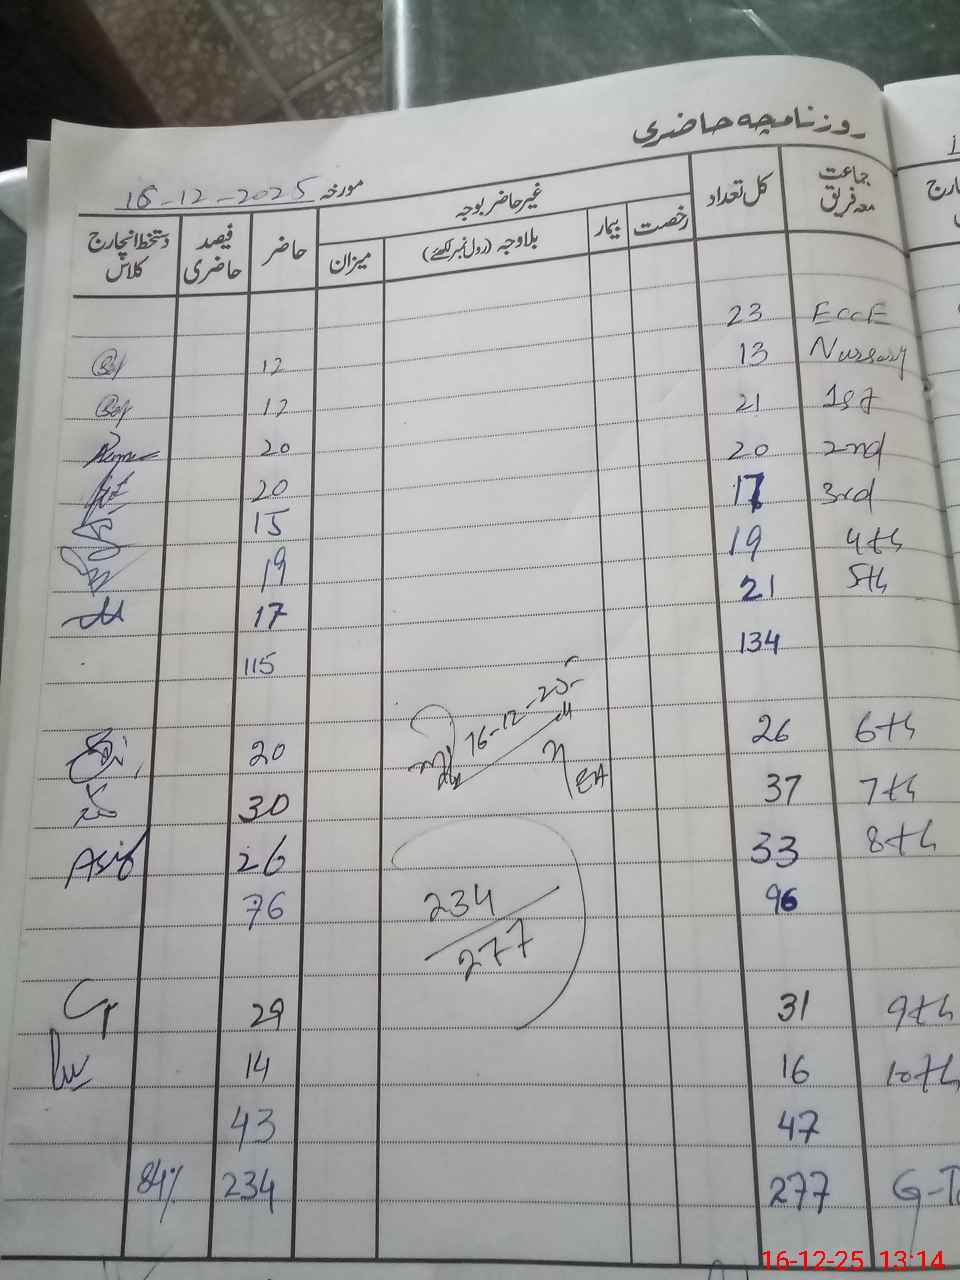 روزنامچہ حاضری
مورخہ 16-12-2025
جماعت معہ فریق کل تعداد غیر حاضر بوجہ حاضر فیصد حاضری دستخط انچارج کلاس
رخصت بیمار بلاوجہ (رول نمبر لکھئے) میزان
EccE 23
Nursery 13 12
1st 21 12
2nd 20 20
3rd 17 20
4th 19 15
5th 21 19
134 17
115
16-12-25
6th 26 20
7th 37 30
8th 33 26 Asif
96 76
234
277
9th 31 29
10th 16 14
47 43
277 234 84%
16-12-25 13:14